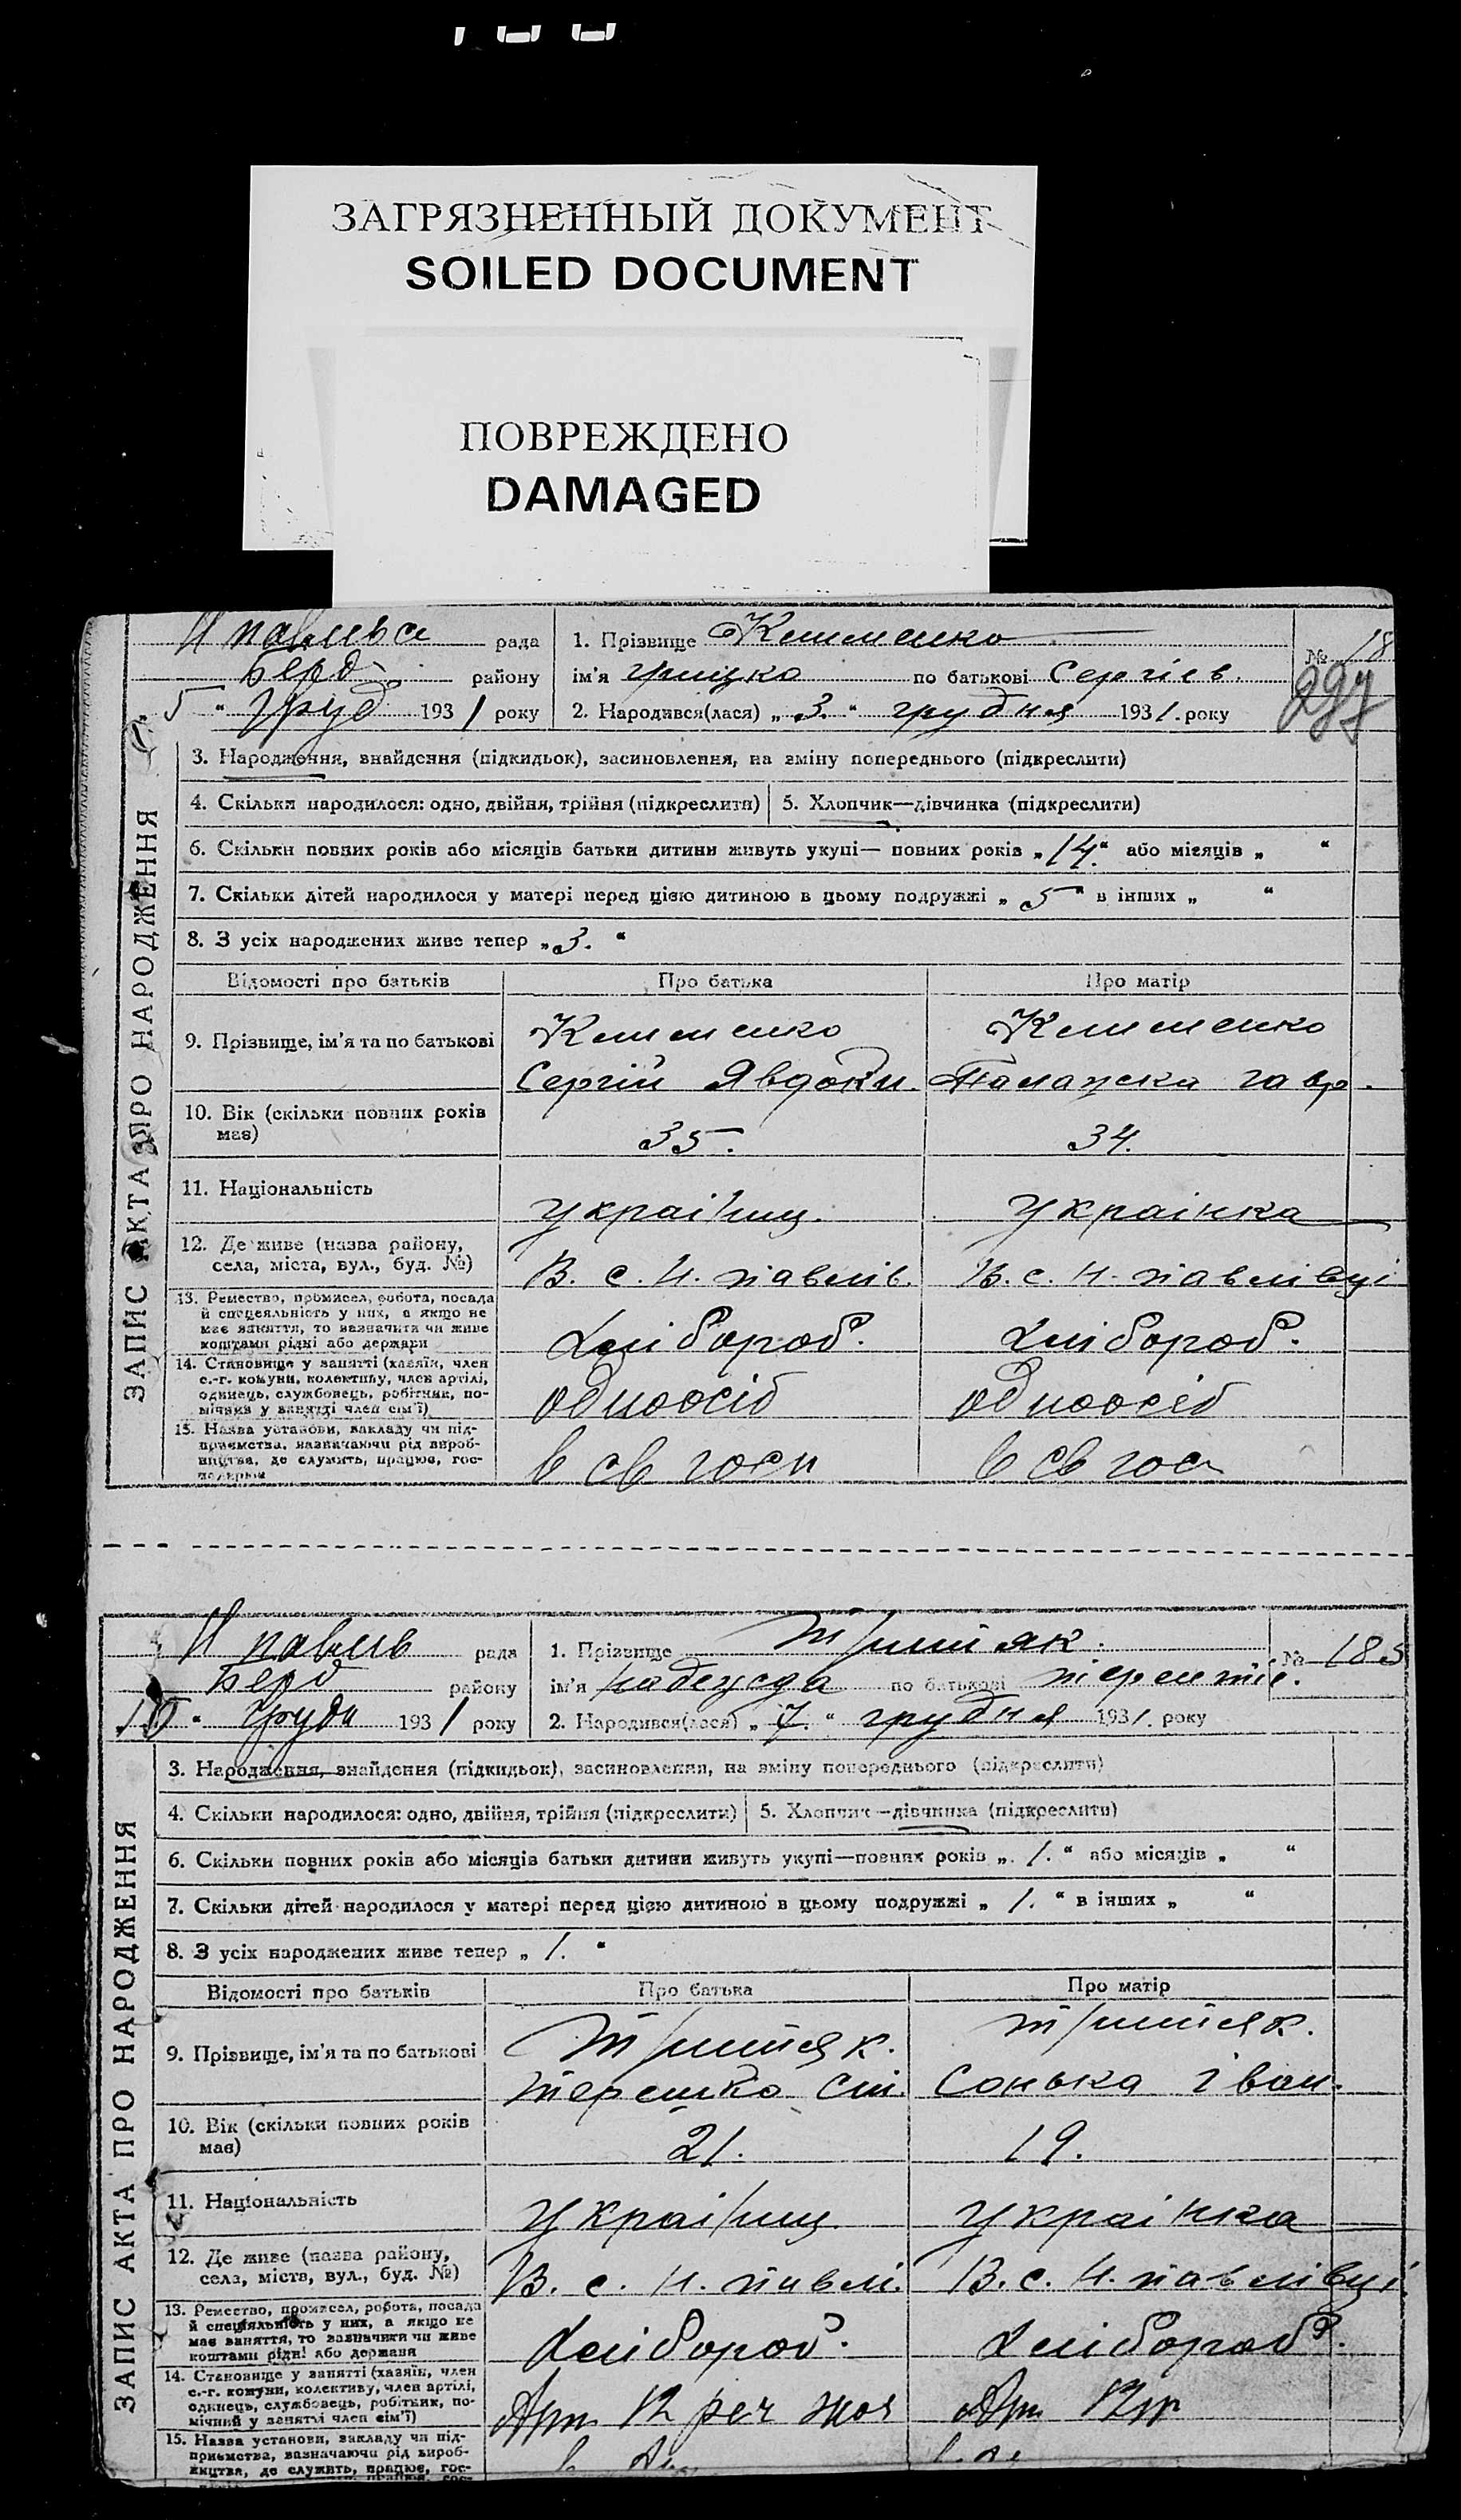 ЗАГРЯЗНЕННЫЙ ДОКУМЕНТ
SOILED DOCUMENT
ПОВРЕЖДЕНО
DAMAGED
ЗАПИС АКТА ПРО НАРОДЖЕННЯ
Н павлівс рада 1. Прізвище Клименко № 18
Берд. району ім'я Грицко по батькові Сергієв.
„ 5 “ Груд 1931 року 2. Народився(лася) „ 3. “ грудня 1931. року
297
3. Народження, знайдення (підкидьок), засиновлення, на зміну попереднього (підкреслити)
4. Скільки народилося: одно, двійня, трійня (підкреслити) 5. Хлопчик—дівчинка (підкреслити)
6. Скільки повних років або місяців батьки дитини живуть укупі— повних років „ 14. “ або місяців „ “
7. Скільки дітей народилося у матері перед цією дитиною в цьому подружжі „ 5 “ в інших „ “
8. З усіх народжених живе тепер „ 3. “
Відомості про батьків Про батька Про матір
9. Прізвище, ім'я та по батькові Клименко Клименко
Сергій Явдоки. Палажка гавр.
10. Вік (скільки повних років має) 35. 34.
11. Національність українц. українка
12. Де живе (назва району, села, міста, вул., буд. №) В. с. Н. павлів. В. с. Н. павлівці
13. Ремество, промисел, робота, посада й спеціяльність у них, а якщо не має заняття, то зазначити чи живе коштами рідні або держави хлібороб. хлібороб.
14. Становище у занятті (хазяїн, член с.-г. комуни, колективу, член артілі, одинець, службовець, робітник, помічник у занятті член сім'ї) одноосіб одноосіб
15. Назва установи, закладу чи підприємства, зазначаючи рід виробництва, де служить, працює, господарює в св госп в св гос
ЗАПИС АКТА ПРО НАРОДЖЕННЯ
Н павлів рада 1. Прізвище № 185
Берд району ім'я надежда по батькові терентіє.
10 “ Грудн 1931 року 2. Народився(лася) „ 7. “ грудня 1931. року
3. Народження, знайдення (підкидьок), засиновлення, на зміну попереднього (підкреслити)
4. Скільки народилося: одно, двійня, трійня (підкреслити) 5. Хлопчик—дівчинка (підкреслити)
6. Скільки повних років або місяців батьки дитини живуть укупі—повних років „ 1. “ або місяців „ “
7. Скільки дітей народилося у матері перед цією дитиною в цьому подружжі „ 1. “ в інших „ “
8. З усіх народжених живе тепер „ 1. “
Відомості про батьків Про батька Про матір
9. Прізвище, ім'я та по батькові
терешко Сонька Іван.
10. Вік (скільки повних років має) 21. 19.
11. Національність українц українка
12. Де живе (назва району, села, міста, вул., буд. №) В. с. Н. павлі. В. с. Н. павлівці.
13. Ремество, промисел, робота, посада й спеціяльність у них, а якщо не має заняття, то зазначити чи живе коштами рідні або держави хлібороб. хлібороб.
14. Становище у занятті (хазяїн, член с.-г. комуни, колективу, член артілі, одинець, службовець, робітник, помічний у занятті член сім'ї) Арт 12 реч Арт 12
15. Назва установи, закладу чи підприємства, зазначаючи рід виробництва, де служить, працює, гос-